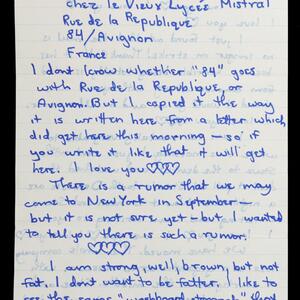 chez le Vieux Lycée Mistral
Rue de la Republique
84/Avignon
France
I dont know whether "84" goes
with Rue de la Republique, or
Avignon. But I copied it the way
it is written here from a letter which
did get here this morning - so if
you write it like that it will get
here. I love you ♡♡♡
There is a rumor that we may
come to New York in September -
but it is not sure yet - but I wanted
to tell you there is such a rumor!
♡♡♡♡
I am strong, well, brown, but not
fat. I dont want to be fatter. I like to
see the same "washboard stomach" that